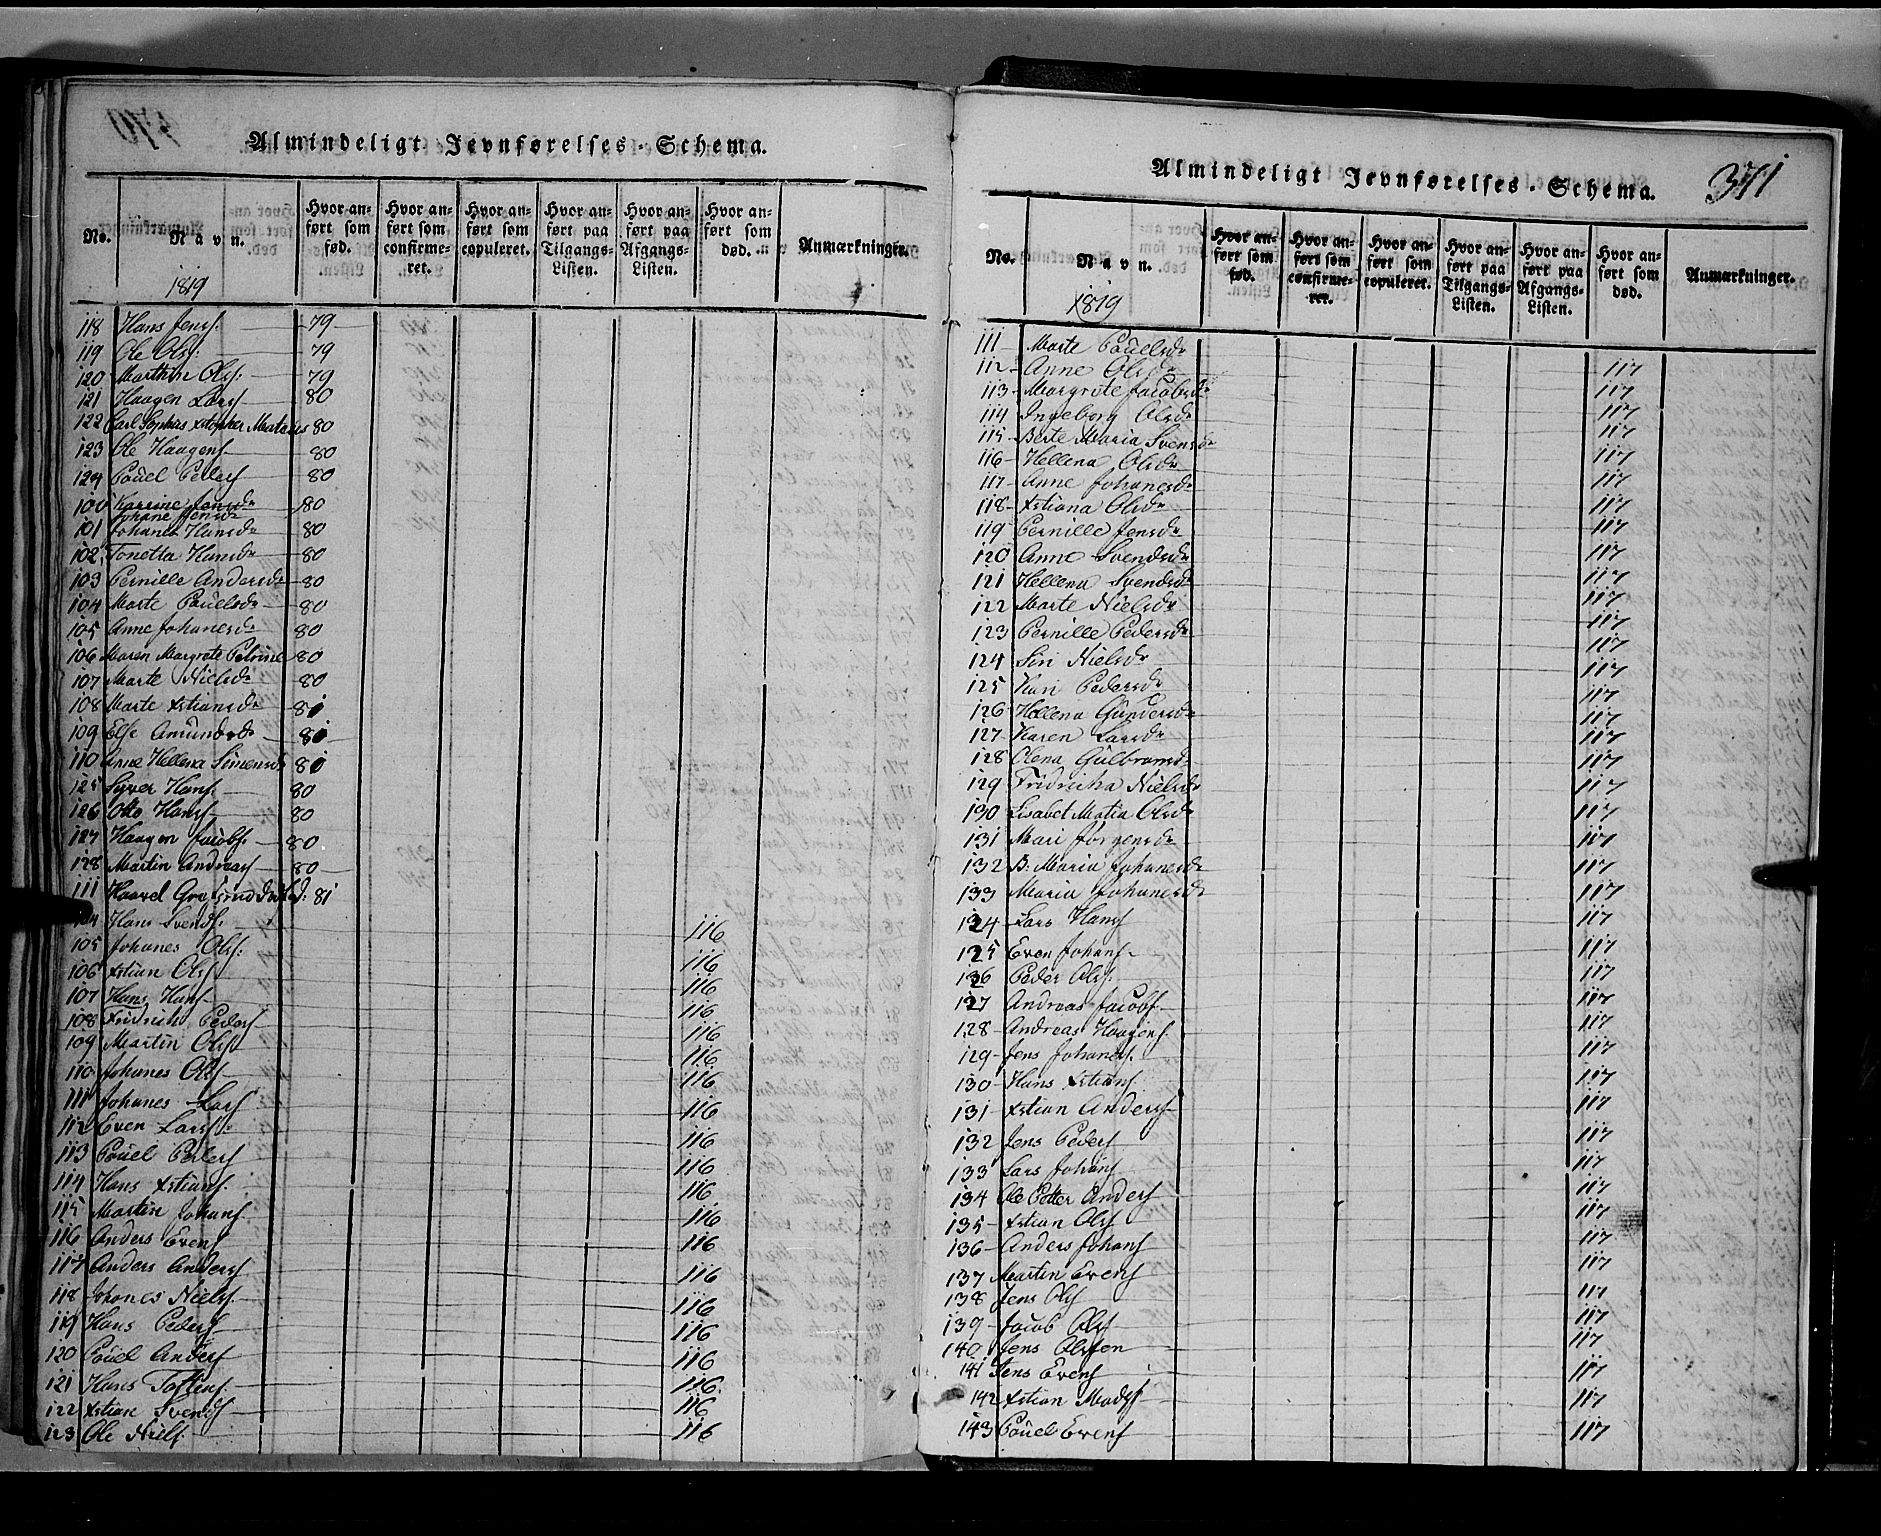 Almindeligt Jevnførelses-Schema.
No. Navn. Hvor anført som fød. Hvor anført som confirmeret. Hvor anført som copuleret. Hvor anført paa Tilgangs-Listen. Hvor anført paa Afgangs-Listen. Hvor anført som død. Anmærkninger.
1819
118 Hans Jens. 79
119 Ole Ols. 79
120 Marthin Ols. 79
121 Haagen Lars 80
122 Carl Sophus Xstopher 80
123 Ole Haagens 80
124 Pouel Peders 80
100 Karrine Jensdr 80
Johane Jensdr
101 Johanes Hansdr 80
102 Tonetta Hansdr 80
103 Pernille Andersdr 80
104 Marte Pouelsdr 80
105 Anne Johanesdr 80
106 Maren Margrete Petrine 80
107 Marte Nielsdr 80
108 Marte Xstiansdr 81
109 Else Amundsdr 81
110 Anne Hellena Simensdr 81
125 Siver Hans. 80
126 Otto Hans 80
127 Haagen Jacobs. 80
128 Martin Andreas 80
111 Haavel 81
104 Hans Svends. 116
105 Johanes Ols. 116
106 Xstian Ols 116
107 Hans Hans 116
108 Fridrich Peders 116
109 Martin Ols 116
110 Johanes Ols 116
111 Johanes Lars 116
112 Even Lars 116
113 Pouel Peders 116
114 Hans Xstians. 116
115 Martin Johans 116
116 Anders Evens 116
117 Anders Anders 116
118 Johanes Niels. 116
119 Hans Peders 116
120 Pouel Anders 116
121 Hans Toftens. 116
122 Xstian Svends 116
123 Ole Niels. 116
Almindeligt Jevnførelses-Schema. 371
No. Navn. Hvor anført som fød. Hvor anført som confirmeret. Hvor anført som copuleret. Hvor anført paa Tilgangs-Listen. Hvor anført paa Afgangs-Listen. Hvor anført som død. Anmærkninger.
1819
111 Marte Pouelsdr 117
112 Anne Olsdr 117
113 Margrete Jacobsdr 117
114 Ingeborg Olsdr 117
115 Berte Maria Svensdr 117
116 Hellena Olsdr 117
117 Anne Johanesdr 117
118 Xstiana Olsdr 117
119 Pernille Jensdr 117
120 Anne Svendsdr 117
121 Hellena Svendsdr 117
122 Marte Nielsdr 117
123 Pernille Pedersdr 117
124 Siri Nielsdr 117
125 Kari Pedersdr 117
126 Hellena Gundersdr 117
127 Karen Larsdr 117
128 Olena Gulbransdr 117
129 Fridricha Nielsdr 117
130 Lisabet Matia Olsdr 117
131 Mari Jørgensdr 117
132 B. Maria Johanesdr 117
133 Maria Johanesdr 117
124 Lars Hans 117
125 Even Johans 117
126 Peder Ols. 117
127 Andreas Jacobs 117
128 Andreas Haagens 117
129 Jens Johanes. 117
130 Hans Xstians 117
131 Xstian Anders 117
132 Jens Peders 117
133 Lars Johans 117
134 Ole Petter Anders 117
135 Xstian Ols 117
136 Anders Johans 117
137 Martin Evens 117
138 Jens Ols 117
139 Jacob Ols 117
140 Jens Olssen 117
141 Jens Evens 117
142 Xstian Mads 117
143 Pouel Evens 117